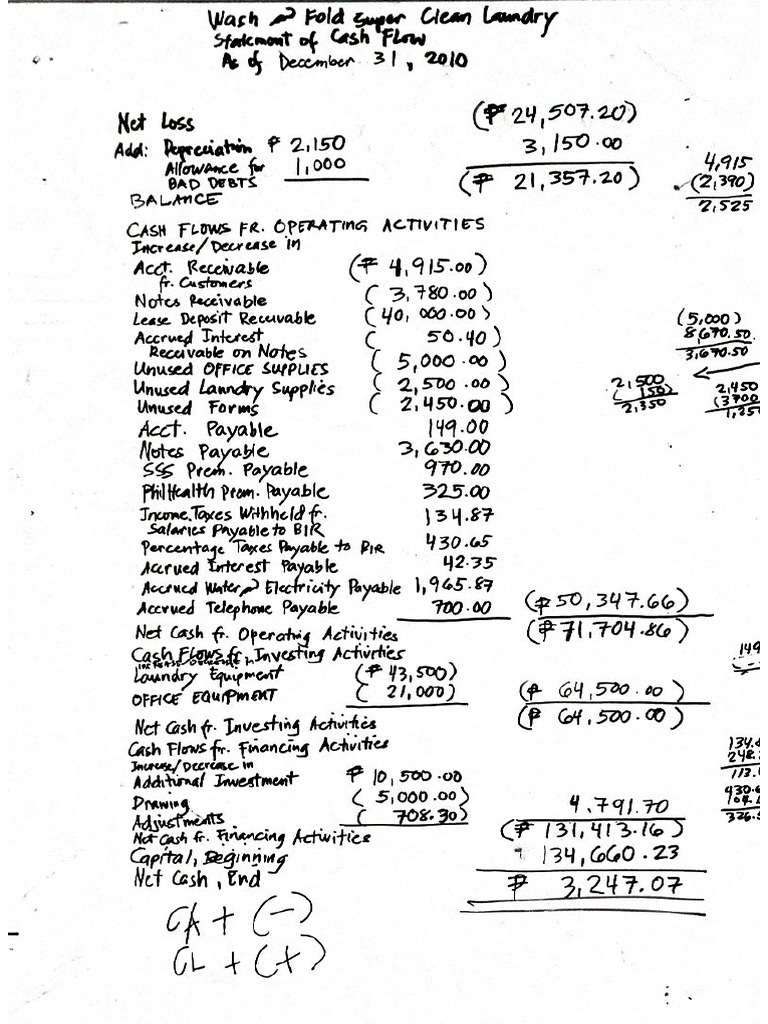 Wash & Fold Super Clean Laundry
Statement of Cash Flow
As of December 31, 2010
Net Loss (₱ 24,507.20)
Add: Depreciation ₱ 2,150 3,150.00
Allowance for 1,000 (₱ 21,357.20)
BAD DEBTS
BALANCE
4,915
(2,390)
2,525
CASH FLOWS FR. OPERATING ACTIVITIES
Increase/Decrease in
Acct. Receivable (₱ 4,915.00)
fr. Customers
Notes Receivable (3,780.00)
Lease Deposit Receivable (40,000.00)
Accrued Interest (50.40)
Receivable on Notes
Unused OFFICE SUPPLIES (5,000.00)
Unused Laundry Supplies (2,500.00)
Unused Forms (2,450.00)
(5,000)
8,670.50
3,670.50
2,500
(150)
2,350
2,450
(3700
1,250
Acct. Payable 149.00
Notes Payable 3,630.00
SSS Prem. Payable 970.00
PhilHealth Prem. Payable 325.00
Income Taxes Withheld fr. 134.87
Salaries Payable to BIR
Percentage Taxes Payable to BIR 430.65
Accrued Interest Payable 42.35
Accrued Water & Electricity Payable 1,965.87
Accrued Telephone Payable 700.00 (₱ 50,347.66)
Net Cash fr. Operating Activities (₱ 71,704.86)
Cash Flows fr. Investing Activities
Increase/Decrease in
Laundry Equipment (₱ 43,500)
OFFICE EQUIPMENT (21,000) (₱ 64,500.00)
Net Cash fr. Investing Activities (₱ 64,500.00)
149
Cash Flows fr. Financing Activities
Increase/Decrease in
Additional Investment ₱ 10,500.00
Drawing (5,000.00)
Adjustments (708.30) 4,791.70
Net Cash fr. Financing Activities (₱ 131,413.16)
Capital, Beginning 134,660.23
Net Cash, End ₱ 3,247.07
CA + (-)
CL + (+)